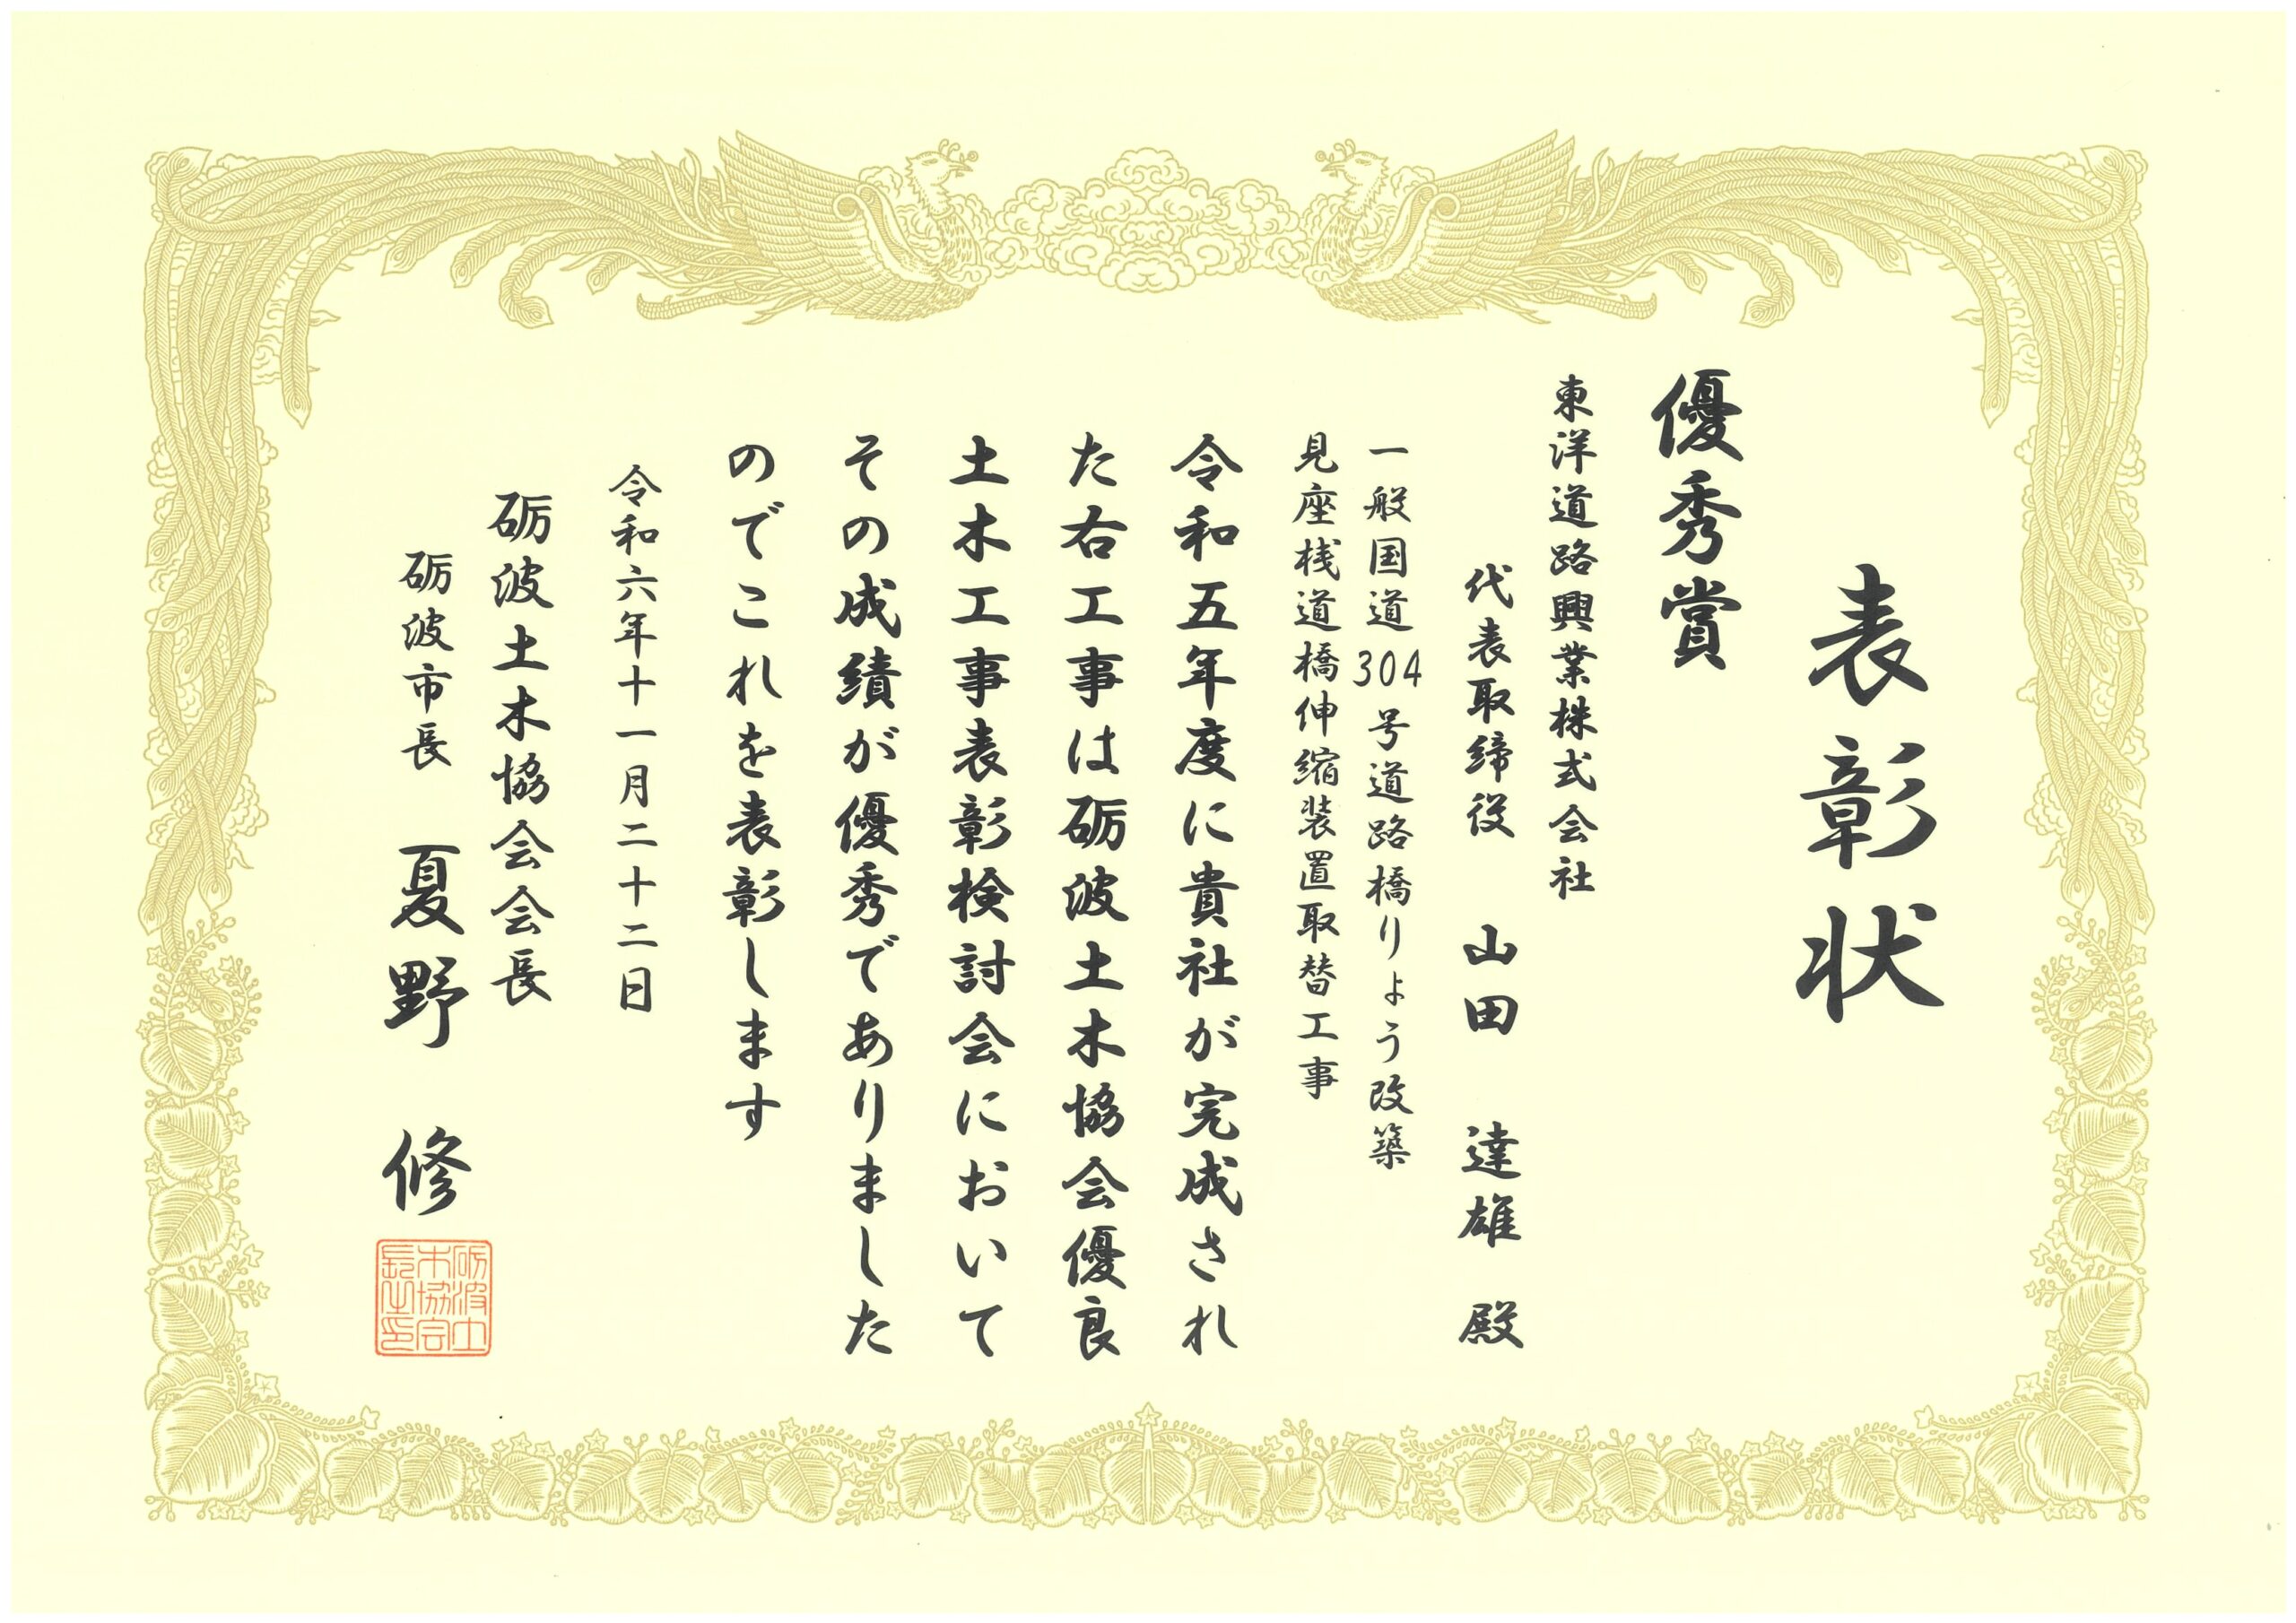 表彰状
優秀賞
東洋道路興業株式会社
代表取締役 山田 達雄 殿
一般国道304号道路橋りょう改築
見座桟道橋伸縮装置取替工事
令和五年度に貴社が完成され
た右工事は砺波土木協会優良
土木工事表彰検討会において
その成績が優秀でありました
のでこれを表彰します
令和六年十一月二十二日
砺波土木協会会長
砺波市長 夏野 修
砺波土
木協会
長之印